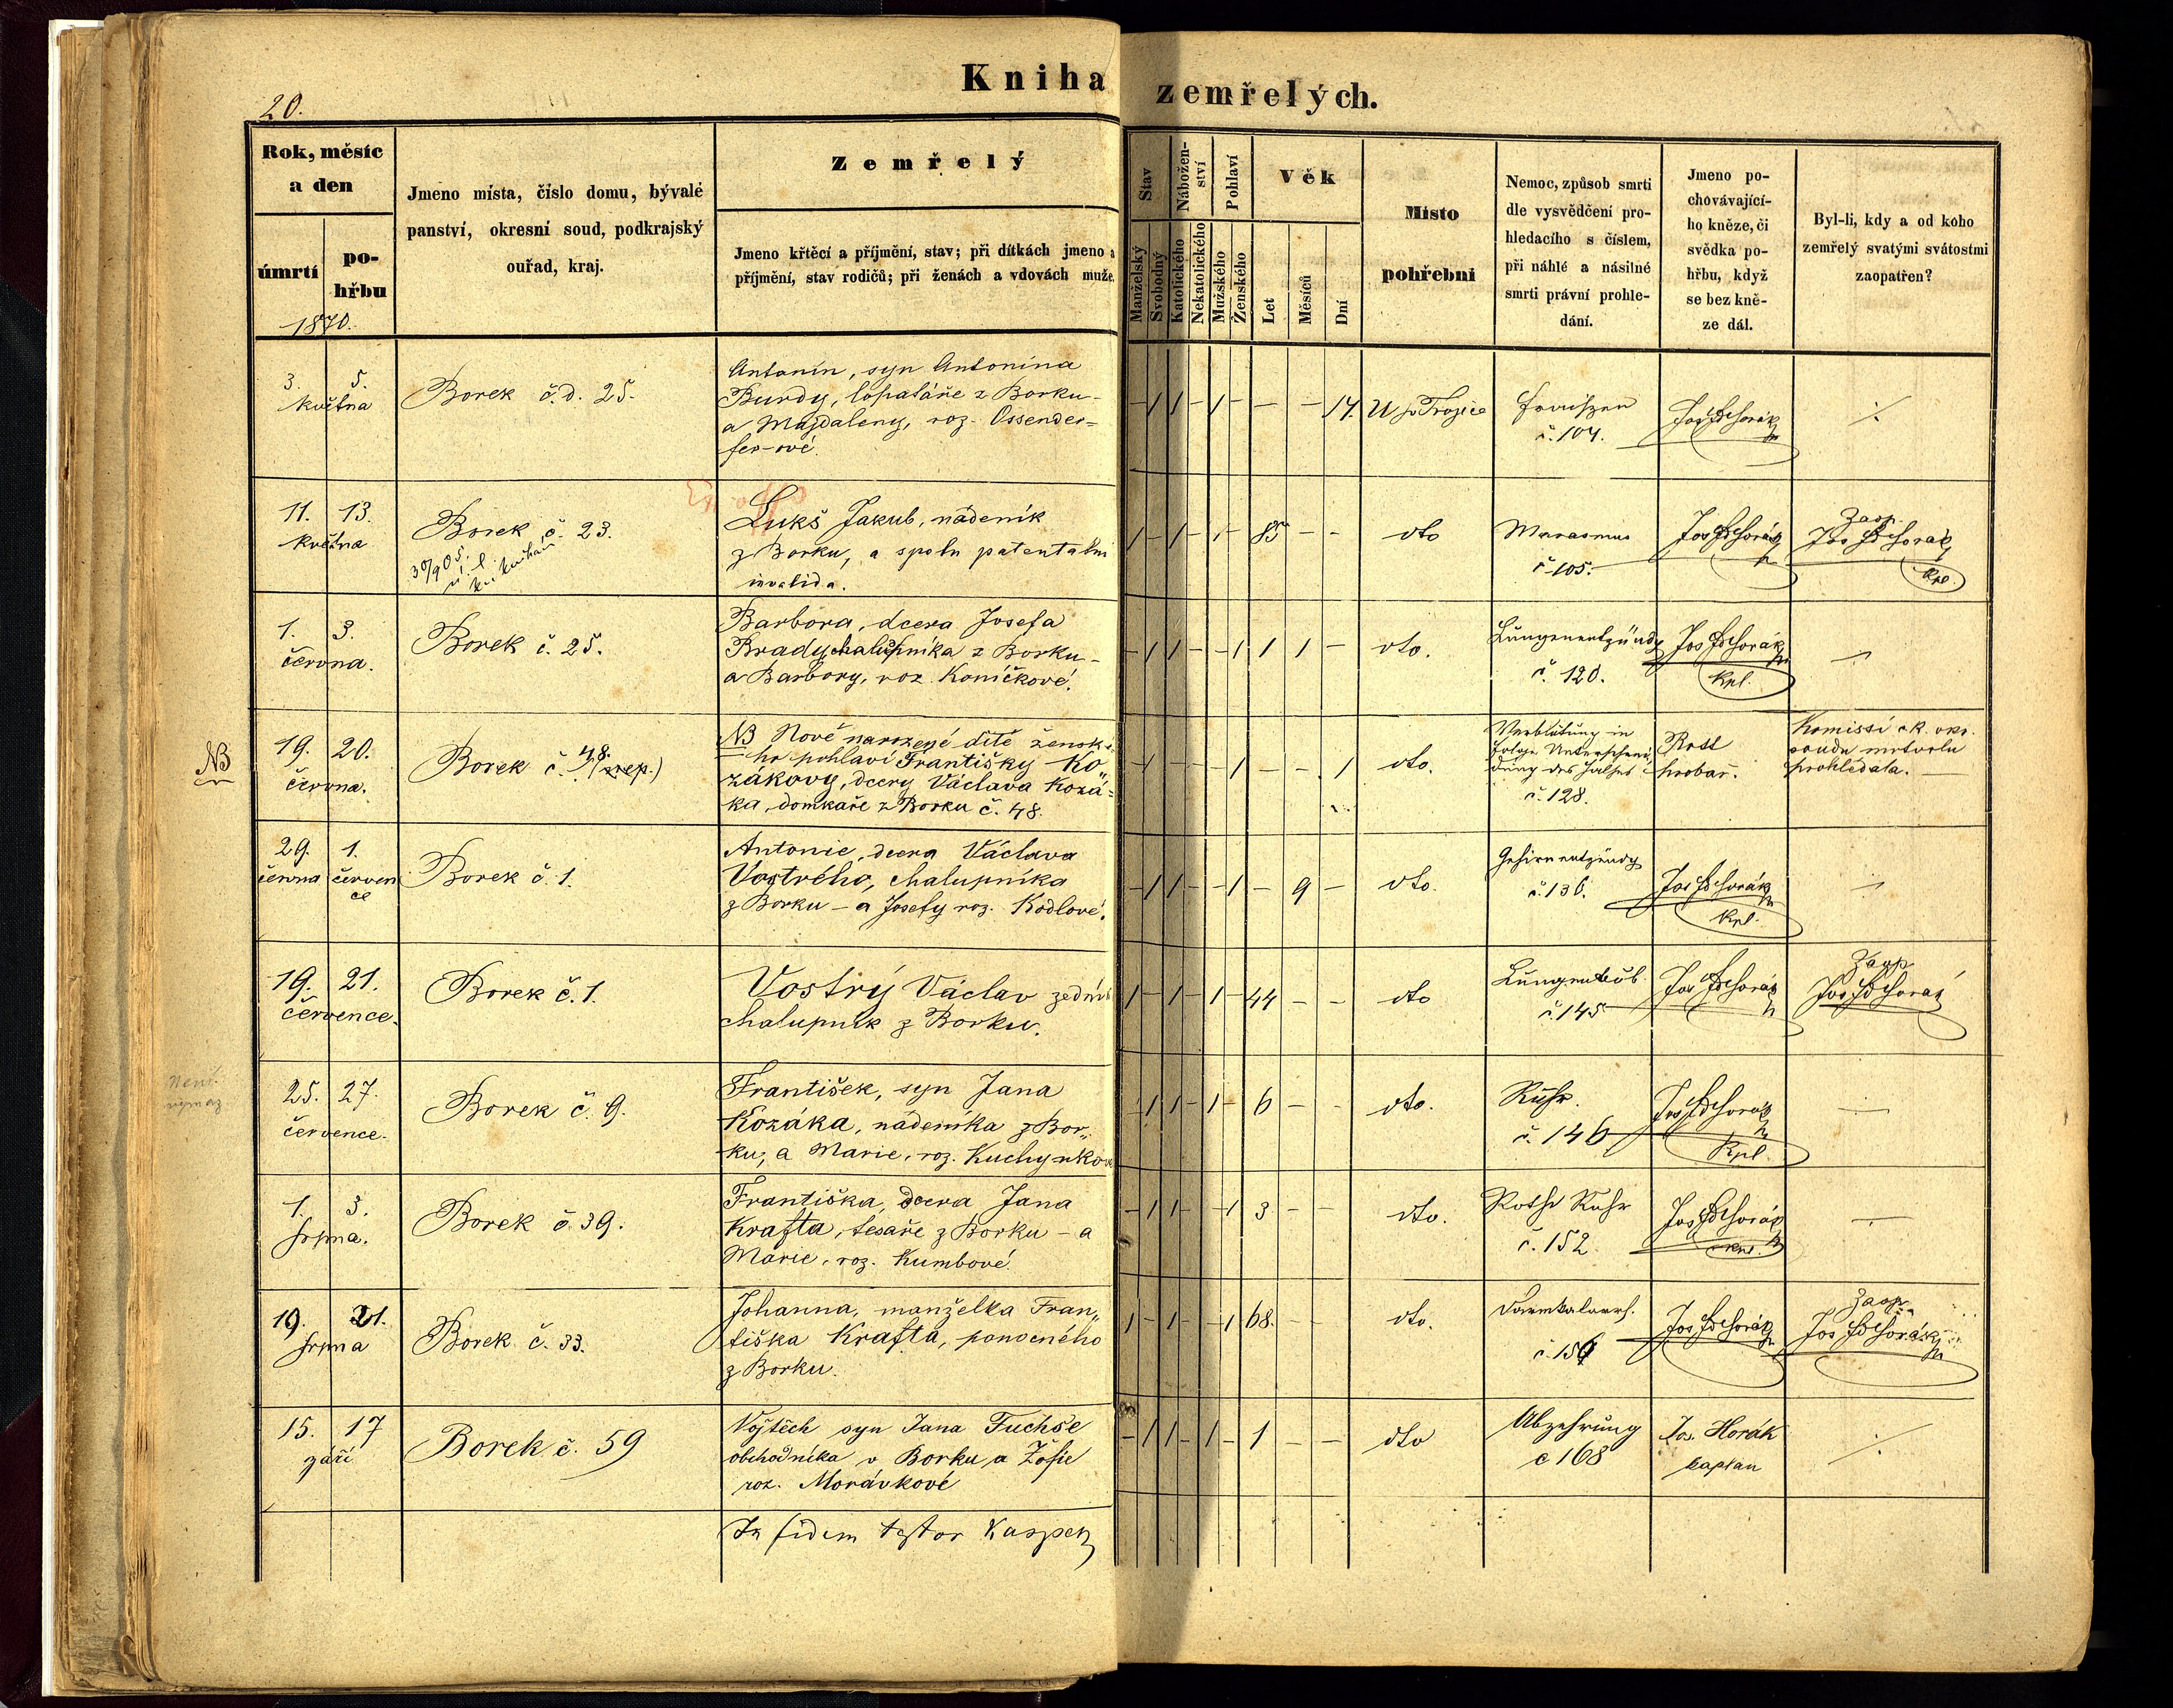 Kniha zemřelých.
20.
Rok, měsíc
a den
úmrtí
po-
hřbu
1870.
Jméno místa, číslo domu, bývalé
panství, okresní soud, podkrajský
ouřad, kraj.
Zemřelý
Jmeno křtěcí a příjmění, stav; při dítkách jmeno a
příjmění, stav rodičů; při ženách a vdovách muže.
Stav
Manželský
Svobodný
Nábožen-
ství
Katolického
Nekatolického
Pohlaví
Mužského
Ženského
Věk
Let
Měsíců
Dní
Místo
pohřební
Nemoc, způsob smrti
dle vysvědčení pro-
hledacího s číslem,
při náhlé a násilné
smrti právní prohle-
dání.
Jmeno po-
chovávající-
ho kněze, či
svědka po-
hřbu, když
se bez kně-
ze dál.
Byl-li, kdy a od koho
zemřelý svatými svátostmi
zaopatřen?
3. 5.
května
Borek č.d. 25.
Antonín, syn Antonína
Burdy, lopatáře z Borku -
a Majdaleny, roz. Ossendor=
fer-ové.
- 1 1 - 1 - - - 14.
U sv Trojice
Fraisen
č. 104.
Jos Horák
11. 13.
května
Borek č. 23.
Lukš Jakub, nádeník
z Borku, a spolu patentální
invalida.
1 - 1 - 1 - 85 - -
dto
Marasmus
č 105.
Jos Horák
Zaop.
Jos Horák
Kpl.
1. 3.
června.
Borek č. 25.
Barbora, dcera Josefa
Brady chalupníka z Borku -
a Barbory, roz. Koníčkové.
- 1 1 - - 1 1 1 -
dto.
Lungenentzündg
č. 120.
Jos Horák
Kpl.
NB
19. 20.
června.
Borek č. 48.
NB Nově narozené dítě ženské-
ho pohlaví Františky Ko"
zákovy, dcery Václava Kozá=
ka, domkáře z Borku č. 48.
- 1 - - - 1 - - 1
dto.
Verblutung in
Folge Unterschnei-
dung des Halses
č. 128.
hrobař.
Komissí ck. okr.
soudu mrtvolu
prohlédala.
29. 1.
června červen
ce
Borek č. 1.
Antonie, dcera Václava
Vostrého, chalupníka
z Borku - a Josefy roz. Kodlové.
- 1 1 - - 1 - 9 -
dto.
Gehirnentzündg
č. 136.
Jos Horák
Kpl.
19. 21.
července.
Borek č. 1.
Vostrý Václav zedník
chalupník z Borku.
1 - 1 - 1 - 44 - -
dto
č. 145
Jos Horák
Zaop
Jos Horák
25. 27.
července.
Borek č. 9.
František, syn Jana
Kozáka, nádeníka z Bor„
ku, a Marie, roz. Kuchynkov
- 1 1 - 1 - 6 - -
dto.
Ruhr.
č. 146
Jos Horák
Kpl.
1. 3.
srpna.
Borek č. 39.
Františka, dcera Jana
Krafta, tesaře z Borku - a
Marie, roz. Kumbové.
- 1 1 - - 1 3 - -
dto.
Rothe Ruhr
č. 152
Jos Horák
Kpl.
19. 21.
srpna
Borek č. 33.
Johanna, manželka Fran„
tiška Krafta, ponocného
z Borku.
1 - 1 - - 1 68. - -
dto.
Darmkatarrh.
č. 156
Jos Horák
Zaop.
Jos Horák
15. 17
září
Borek č. 59
Vojtěch syn Jana Fuchse
obchodníka v Borku a Žofie
roz. Morávkové
- 1 1 - 1 - 1 - -
dto
Abzehrung
č 168
Jos. Horák
kaplan
In fidem testor Kaspek